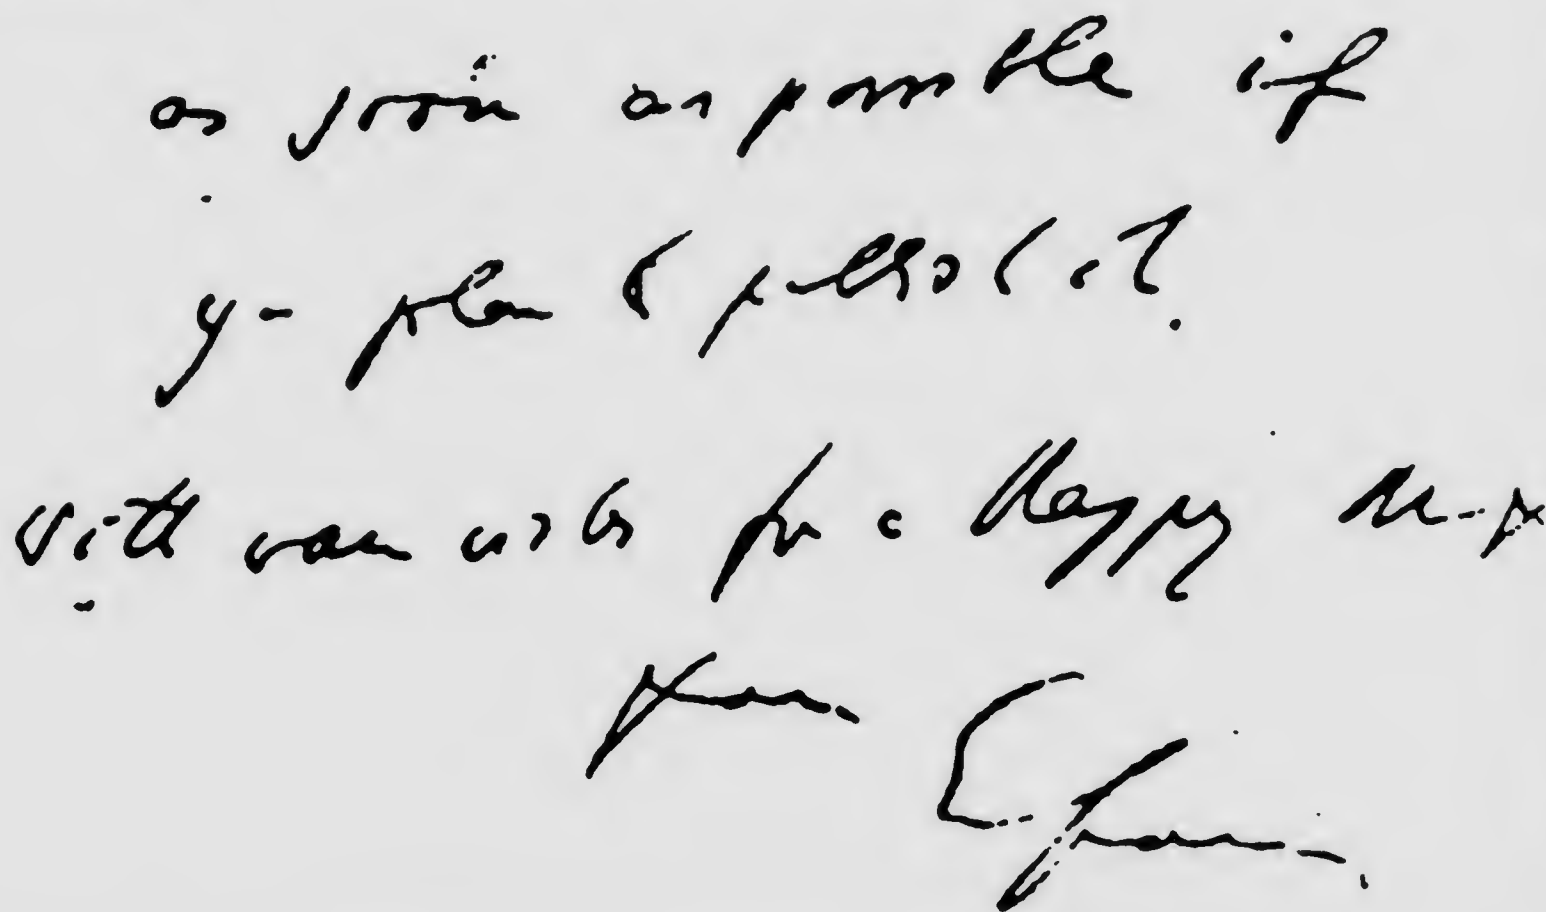 as soon as possible if
you plan to publish it.
With warm wishes for a Happy New